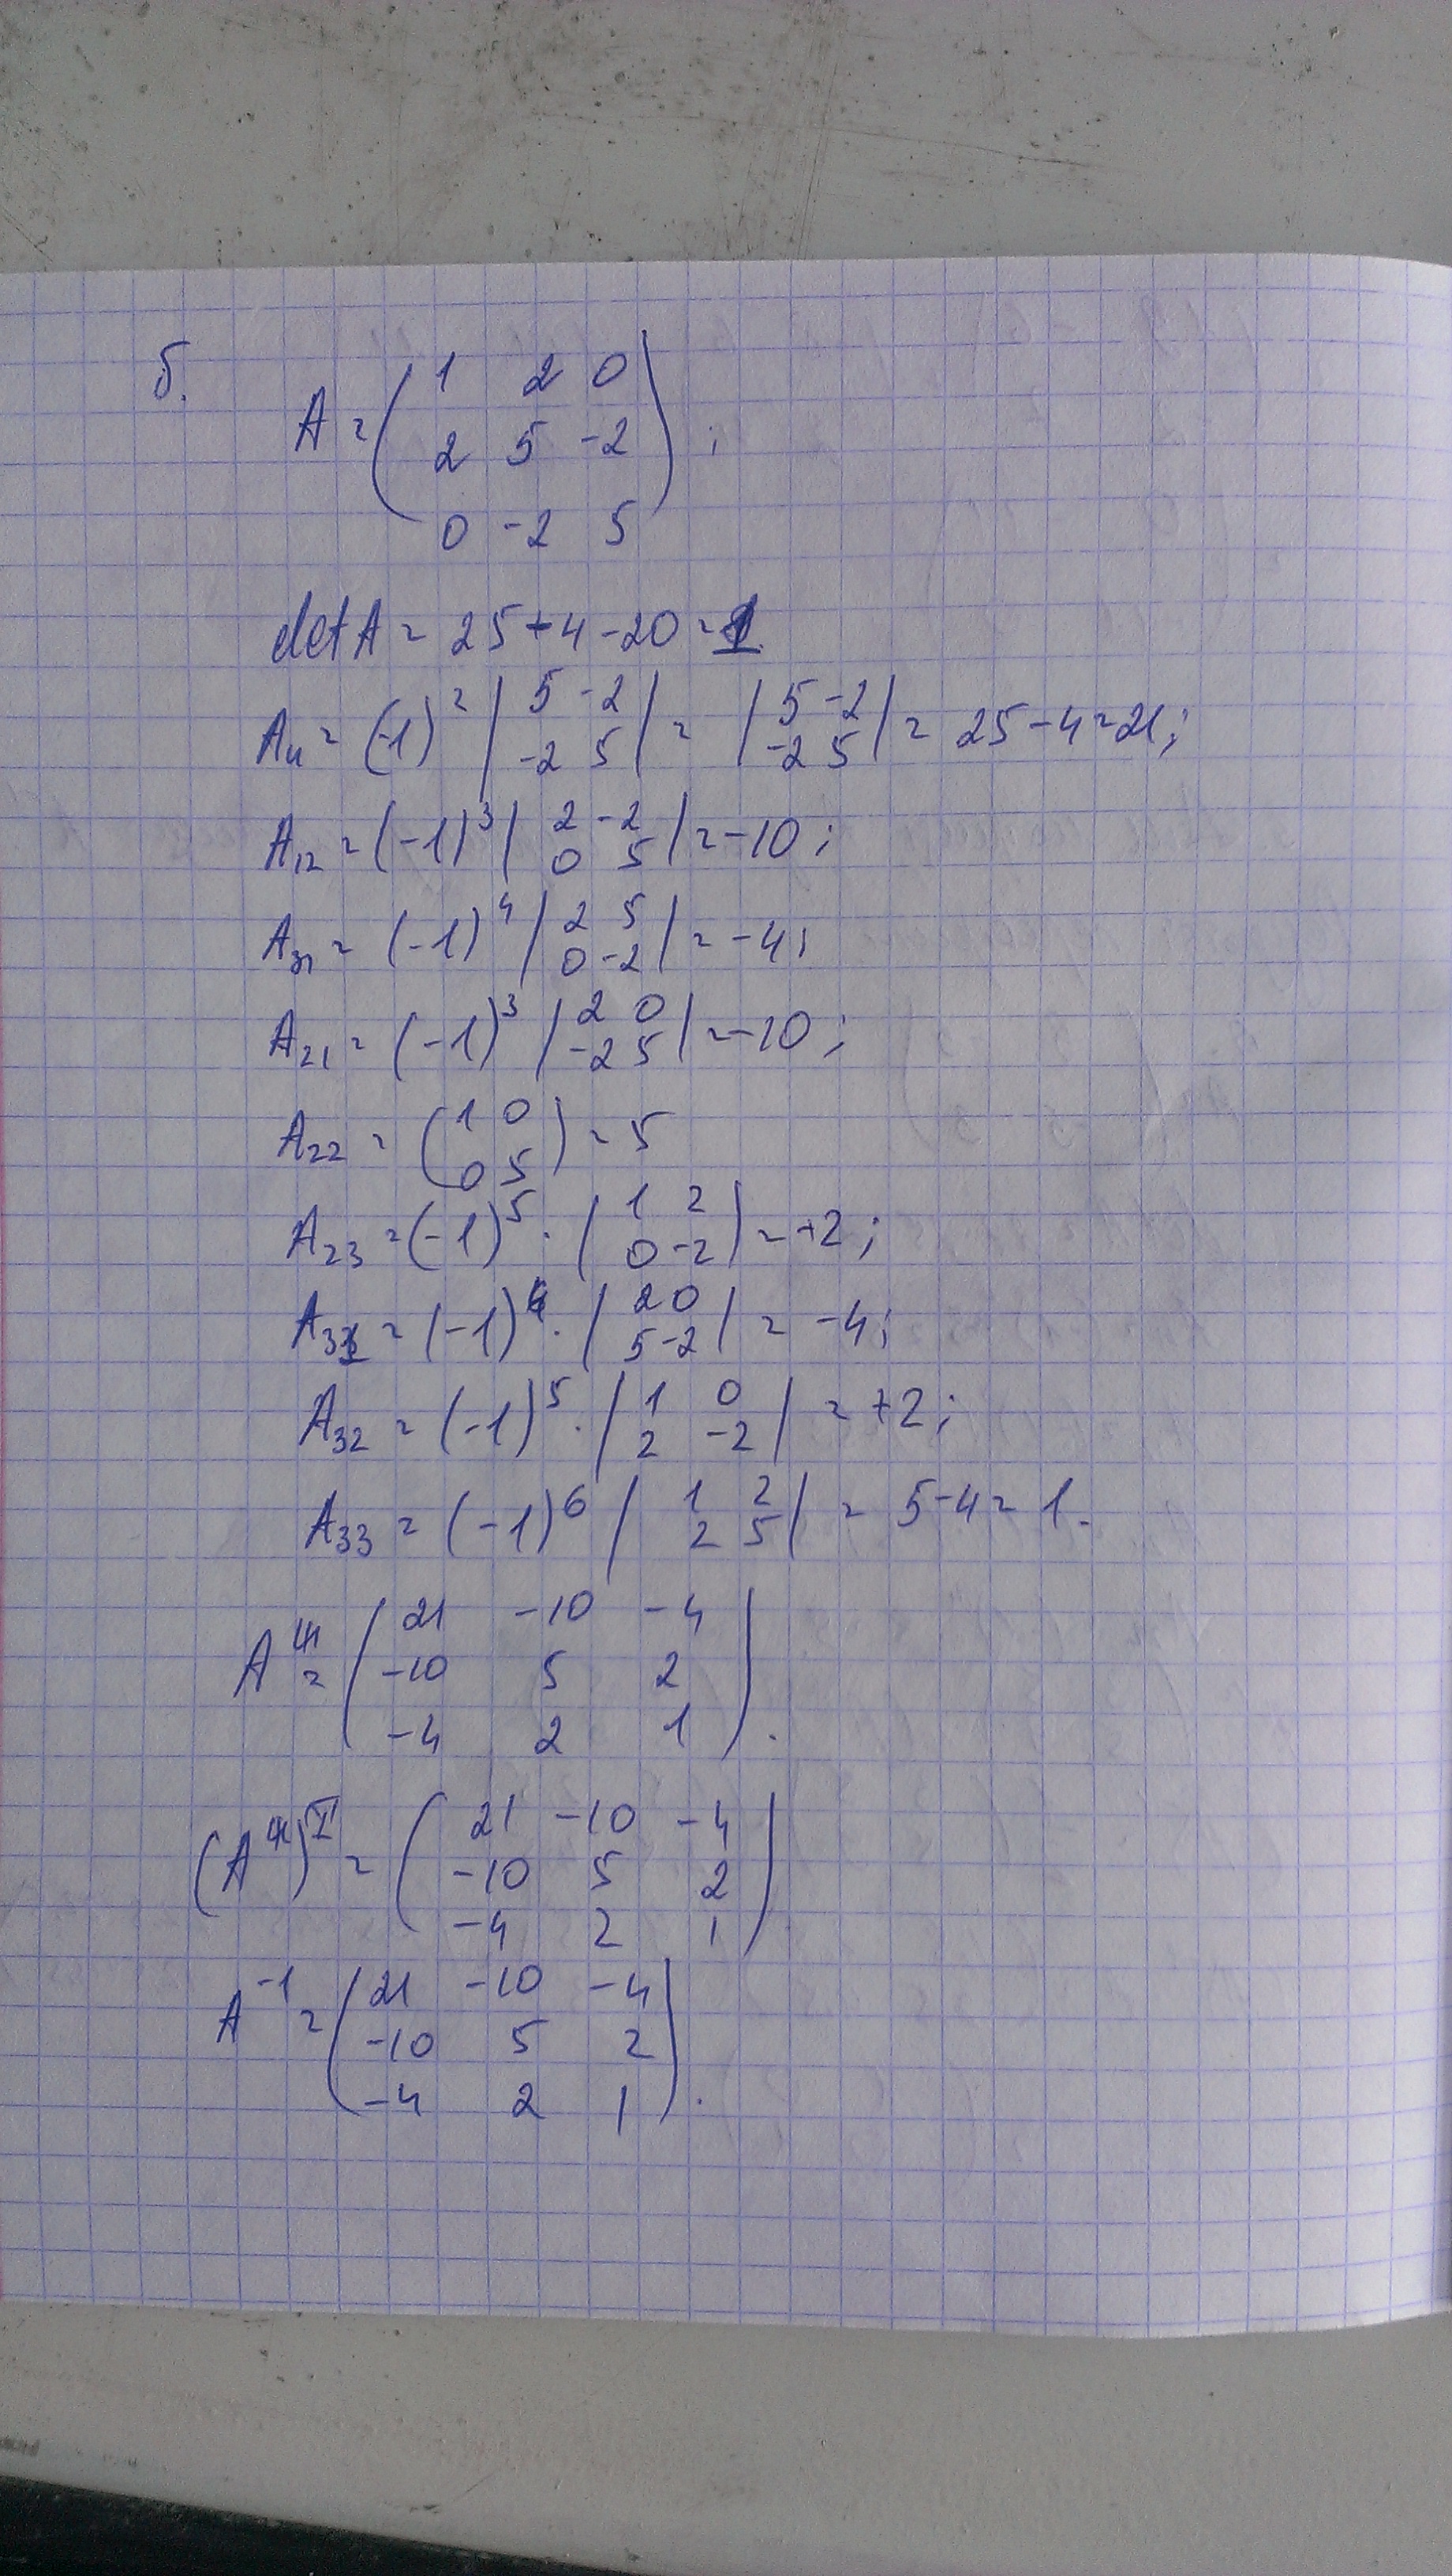 б.
A = ( 1 2 0
2 5 -2
0 -2 5 ) ;
det A = 25 - 4 - 20 = 1.
A11 = (-1)^2 | 5 -2
-2 5 | = | 5 -2
-2 5 | = 25 - 4 = 21;
A12 = (-1)^3 | 2 -2
0 5 | = -10;
A31 = (-1)^4 | 2 5
0 -2 | = -4;
A21 = (-1)^3 | 2 0
-2 5 | = -10;
A22 = ( 1 0
0 5 ) = 5
A23 = (-1)^5 · | 1 2
0 -2 | = +2;
A31 = (-1)^4 · | 2 0
5 -2 | = -4;
A32 = (-1)^5 · | 1 0
2 -2 | = +2;
A33 = (-1)^6 | 1 2
2 5 | = 5 - 4 = 1.
A = ( 21 -10 -4
-10 5 2
-4 2 1 ).
(A )^T = ( 21 -10 -4
-10 5 2
-4 2 1 )
A^-1 = ( 21 -10 -4
-10 5 2
-4 2 1 ).